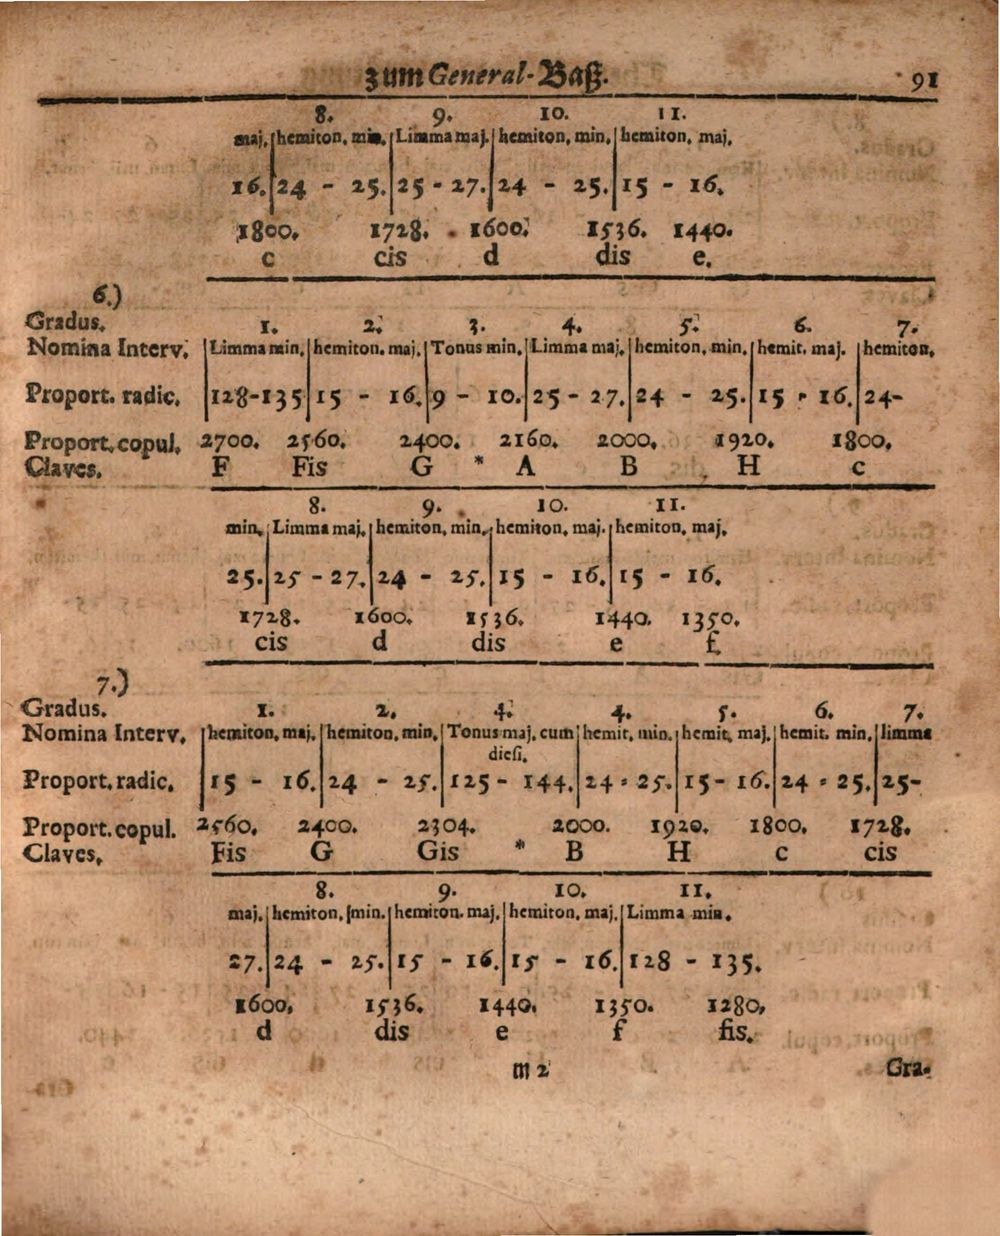 zum General-Baß. 91
8. 9. 10. 11.
maj. hemiton, min. Limma maj. hemiton, min, hemiton, maj,
16. 24 - 25. 25 - 27. 24 - 25. 15 - 16.
1800. 1728. 1600. 1536. 1440.
c cis d dis e.
6.)
Gradus. 1. 2. 3. 4. 5. 6. 7.
Nomina Interv. Limma min, hemiton. maj, Tonus min, Limma maj, hemiton, min, hemit, maj. hemiton,
Proport. radic. 128-135 15 - 16. 9 - 10. 25 - 27. 24 - 25. 15 - 16. 24-
Proport. copul. 2700. 2560. 2400. 2160. 2000. 1920. 1800.
Claves. F Fis G * A B H c
8. 9. 10. 11.
min, Limma maj, hemiton, min, hemiton, maj. hemiton, maj,
25. 25 - 27. 24 - 25. 15 - 16. 15 - 16.
1728. 1600. 1536. 1440. 1350.
cis d dis e f.
7.)
Gradus. 1. 2. 4. 4. 5. 6. 7.
Nomina Interv. hemiton, maj, hemiton, min, Tonus maj, cum hemit, min, hemit, maj. hemit. min, limma
diesi,
Proport. radic. 15 - 16. 24 - 25. 125 - 144. 24 - 25. 15 - 16. 24 - 25. 25-
Proport. copul. 2560. 2400. 2304. 2000. 1920. 1800. 1728.
Claves, Fis G Gis * B H c cis
8. 9. 10. 11.
maj. hemiton, min. hemiton. maj, hemiton, maj, Limma min.
27. 24 - 25. 15 - 16. 15 - 16. 128 - 135.
1600, 1536. 1440. 1350. 1280,
d dis e f fis.
m 2 Gra-